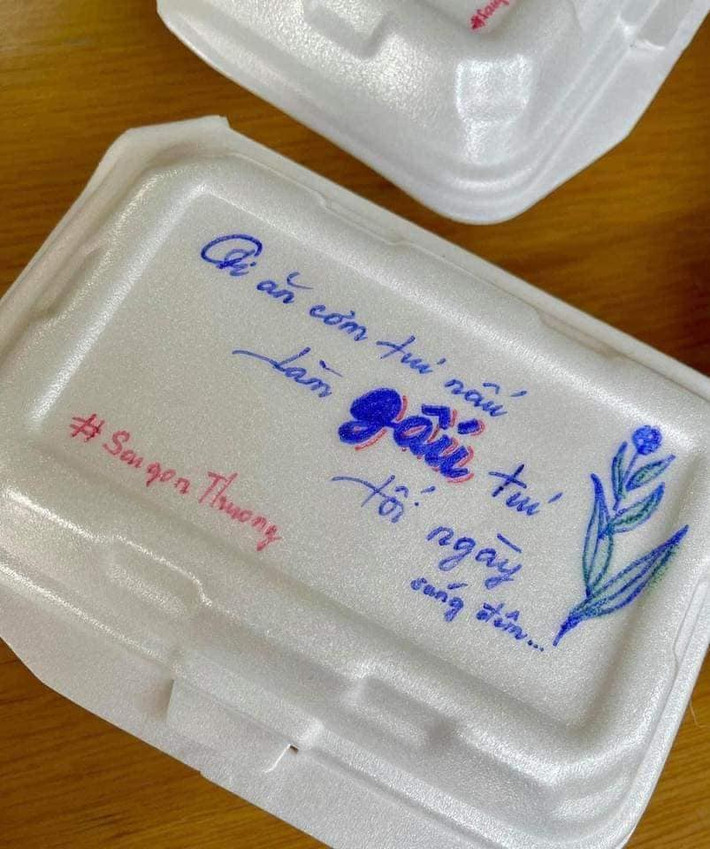 Ai ăn cơm tui nấu
làm gấu tui
tối ngày
sáng đêm...
#Saigon Thương
#Saig